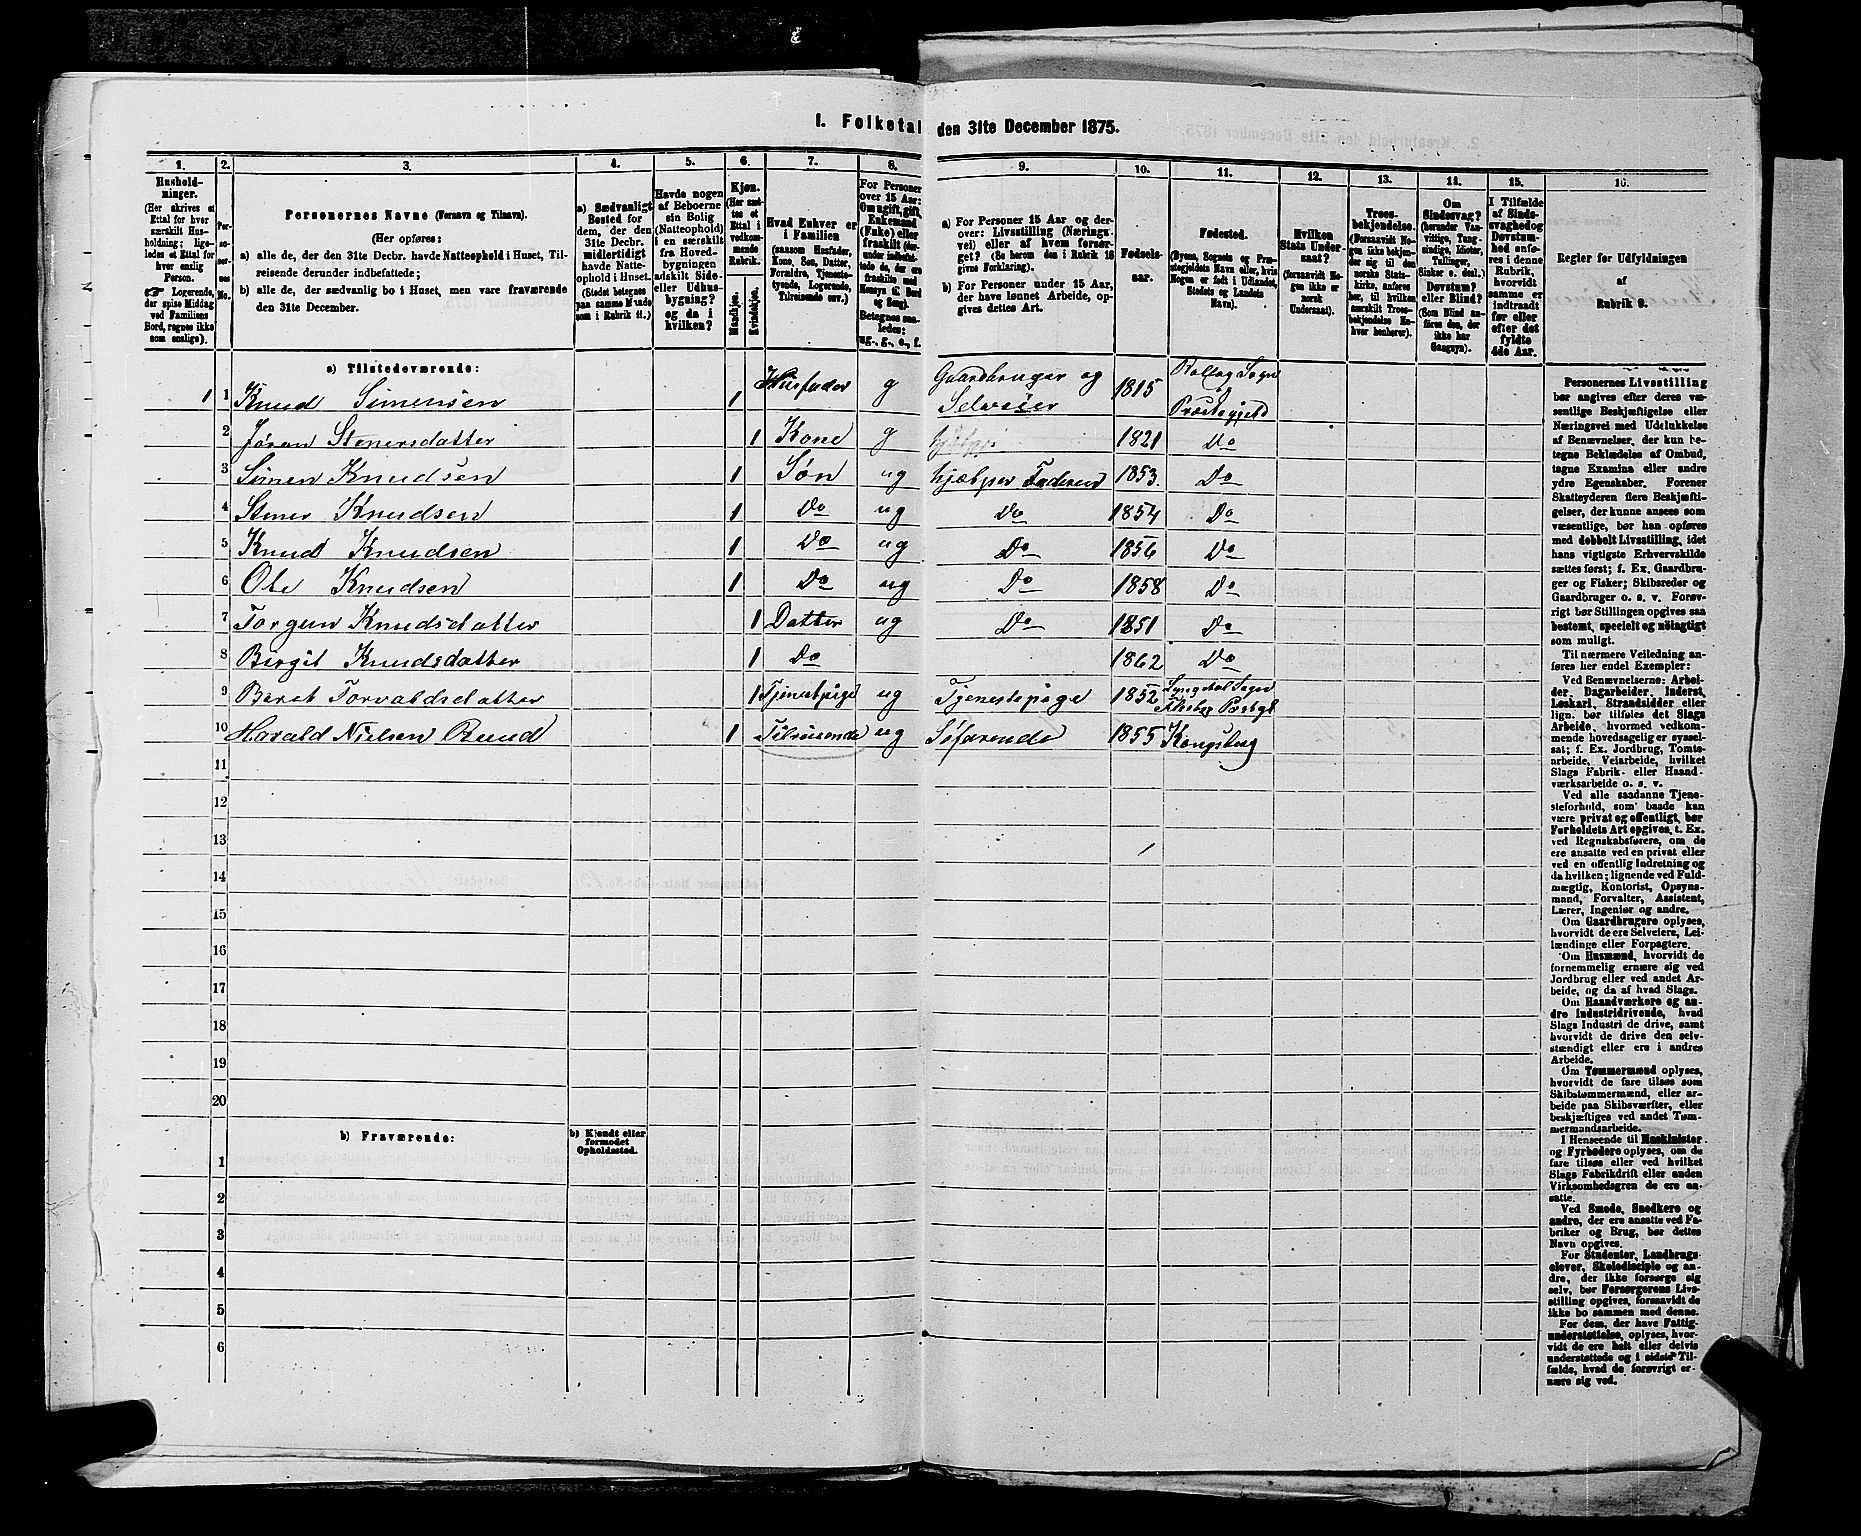 1. Folketal den 31te December 1875.
1. 2. 3. 4. 5. 6. 7. 8. 9. 10. 11. 12. 13. 14. 15. 16.
Hushold-
ninger.
(Her skrives et
Ettal for hver
særskilt Hus-
holdning; lige-
ledes et Ettal for
hver enslig
Person.
☞ Logerende,
der spise Middag
ved Familiens
Bord, regnes ikke
som enslige).
Per-
so-
ner-
nes
No.
Personernes Navne (Fornavn og Tilnavn).
(Her opføres:
a) alle de, der den 31te Decbr. havde Natteophold i Huset, Til-
reisende derunder indbefattede;
b) alle de, der sædvanlig bo i Huset, men vare fraværende
den 31te December.
a) Sædvanligt
Bosted for
dem, der den
31te Decbr.
midlertidigt
havde Natte-
ophold i Huset.
(Stedet betegnes
paa samme Maade
som i Rubrik 11.)
Havde nogen
af Beboerne
sin Bolig
(Natteophold)
i en særskilt
fra Hoved-
bygningen
adskilt Side-
eller Udhus-
bygning?
og da i
hvilken?
Kjøn.
(Her sæt-
tes et
Ettal i
vedkom-
mende
Rubrik.
Mandkjøn.
Kvindekjøn.
Hvad Enhver er
i Familien
(saasom Husfader,
Kone, Søn, Datter,
Forældre, Tjeneste-
tyende, Logerende,
Tilreisende osv.)
For Personer
over 15 Aar:
Om ugift, gift,
Enkemand
(Enke) eller
fraskilt (der-
under indbefat-
tede de, der ere
fraskilte med
Hensyn til Bord
og Seng).
Betegnes saa-
ledes:
ug., g., e., f.
a) For Personer 15 Aar og der-
over: Livsstilling (Nærings-
vei) eller af hvem forsør-
get? (Se herom den i Rubrik 16
givne Forklaring).
b) For Personer under 15 Aar,
der have lønnet Arbeide, op-
gives dettes Art.
Fødsels-
aar.
Fødested.
(Byens, Sognets og Præ-
stegjeldets Navn eller, hvis
Nogen er født i Udlandet,
Stedets og Landets
Navn).
Hvilken
Stats Under-
saat?
(forsaavidt No-
gen ikke er
norsk
Undersaat).
Troes-
bekjendelse.
(Forsaavidt No-
gen ikke bekjen-
der sig til den
norske Stats-
kirke, anføres
her, til hvilken
særskilt Troes-
bekjendelse En-
hver henhører).
Om
Sindssvag?
(herunder Van-
vittige, Tung-
sindige, Idioter,
Tullinger,
Sinker o. desl.)
Døvstum?
eller Blind?
(Som Blind an-
føres den, der
ikke har
Gangsyn).
I Tilfælde
af Sinds-
svaghed og
Døvstum-
hed anfø-
res i denne
Rubrik,
hvorvidt
samme er
indtraadt
før eller
efter det
fyldte
4de Aar.
Regler for Udfyldningen
af
Rubrik 9.
a) Tilstedeværende:
1 1 Knud Simensen 1 Husfader g Gaardbruger og Selveier 1815 Rollag Sogn & Præstegjeld
2 Jøran Stenersdatter 1 Kone g 1821 Do
3 Simen Knudsen 1 Søn ug hjælper Faderen 1853 Do
4 Stener Knudsen 1 Do ug Do 1854 Do
5 Knud Knudsen 1 Do ug Do 1856 Do
6 Ole Knudsen 1 Do ug Do 1858 Do
7 Torgun Knudsdatter 1 Datter ug Do 1851 Do
8 Birgit Knudsdatter 1 Do 1862 Do
9 Beret Torvaldsdatter 1 Tjenestpige ug Tjenestepige 1852
10 Harald Nielsen Ruud 1 Tilreisende ug Søfarende 1855 Kongsberg
11
12
13
14
15
16
17
18
19
20
b) Fraværende:
b) Kjendt eller
formodet
Opholdssted.
1
2
3
4
5
6
Personernes Livsstilling
bør angives efter deres væ-
sentlige Beskjæftigelse eller
Næringsvei med Udelukkelse
af Benævnelser, der kun be-
tegne Beklædelse af Ombud,
tagne Examina eller andre
ydre Egenskaber. Forener
Skatteyderen flere Beskjæfti-
gelser, der kunne ansees som
væsentlige, bør han opføres
med dobbelt Livsstilling, idet
hans vigtigste Erhvervskilde
sættes først; f. Ex. Gaardbru-
ger og Fisker; Skibsreder og
Gaardbruger o. s. v. Forøv-
rigt bør Stillingen opgives saa
bestemt, specielt og nøiagtigt
som muligt.
Til nærmere Veiledning an-
føres her endel Exempler:
Ved Benævnelserne: Arbei-
der, Dagarbeider, Inderst,
Løskarl, Strandsidder eller
lign. bør tilføies det Slags
Arbeide, hvormed vedkom-
mende hovedsagelig er syssel-
sat; f. Ex. Jordbrug, Tomte-
arbeide, Veiarbeide, hvilket
Slags Fabrik- eller Haand-
værksarbeide o. s. v.
Ved alle saadanne Tjene-
steforhold, som baade kan
være privat og offentligt, bør
Forholdets Art opgives, t. Ex.
ved Regnskabsførere, om de
ere ansatte ved en privat eller
ved en offentlig Indretning og
da hvilken; lignende ved Fuld-
mægtig, Kontorist, Opsyns-
mand, Forvalter, Assistent,
Lærer, Ingeniør og andre.
Om Gaardbrugere oplyses,
hvorvidt de ere Selveiere, Lei-
lændinge eller Forpagtere.
Om Husmænd, hvorvidt de
fornemmelig ernære sig ved
Jordbrug eller ved andet Ar-
beide, og da af hvad Slags.
Om Haandværkere og an-
dre Industridrivende, hvad
Slags Industri de drive, samt
hvorvidt de drive den selv-
stændigt eller ere i andres
Arbeide.
Om Tømmermænd oplyses,
hvorvidt de fare tilsøs som
Skibstømmermænd, eller ar-
beide paa Skibsværfter, eller
beskjæftiges ved andet Tøm-
mermandsarbeide.
I Henseende til Maskinister
og Fyrbødere oplyses, om de
fare tilsøs eller ved hvilket
Slags Fabrikdrift eller anden
Virksomhedsgren de ere an-
satte.
Ved Smede, Snedkere og
andre, der ere ansatte ved Fa-
briker og Brug, bør dettes
Navn opgives.
For Studenter, Landbrugs-
elever, Skoledisciple og an-
dre, der ikke forsørge sig
selv, bør Forsørgerens Livs-
stilling opgives, forsaavidt de
ikke bo sammen med denne.
For dem, der have Fattig-
understøttelse, oplyses, hvor-
vidt de ere helt eller delvis
understøttede og i sidste Til-
fælde, hvad de forøvrigt er-
nære sig ved.